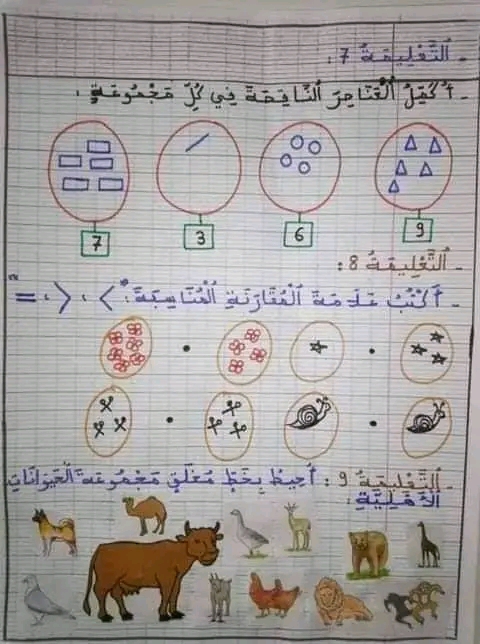 - التَّعْلِيمَةُ 7:
- أُكْمِلُ الْعَنَاصِرَ النَّاقِصَةَ فِي كُلِّ مَجْمُوعَةٍ:
9 6 3 7
- التَّعْلِيمَةُ 8:
- أَكْتُبُ عَلَامَةَ الْمُقَارَنَةِ الْمُنَاسِبَةَ: " > ، < ، = "
- التَّعْلِيمَةُ 9: أُحِيطُ بِخَطٍّ مُغْلَقٍ مَجْمُوعَةَ الْحَيَوَانَاتِ
الْأَهْلِيَّةِ: